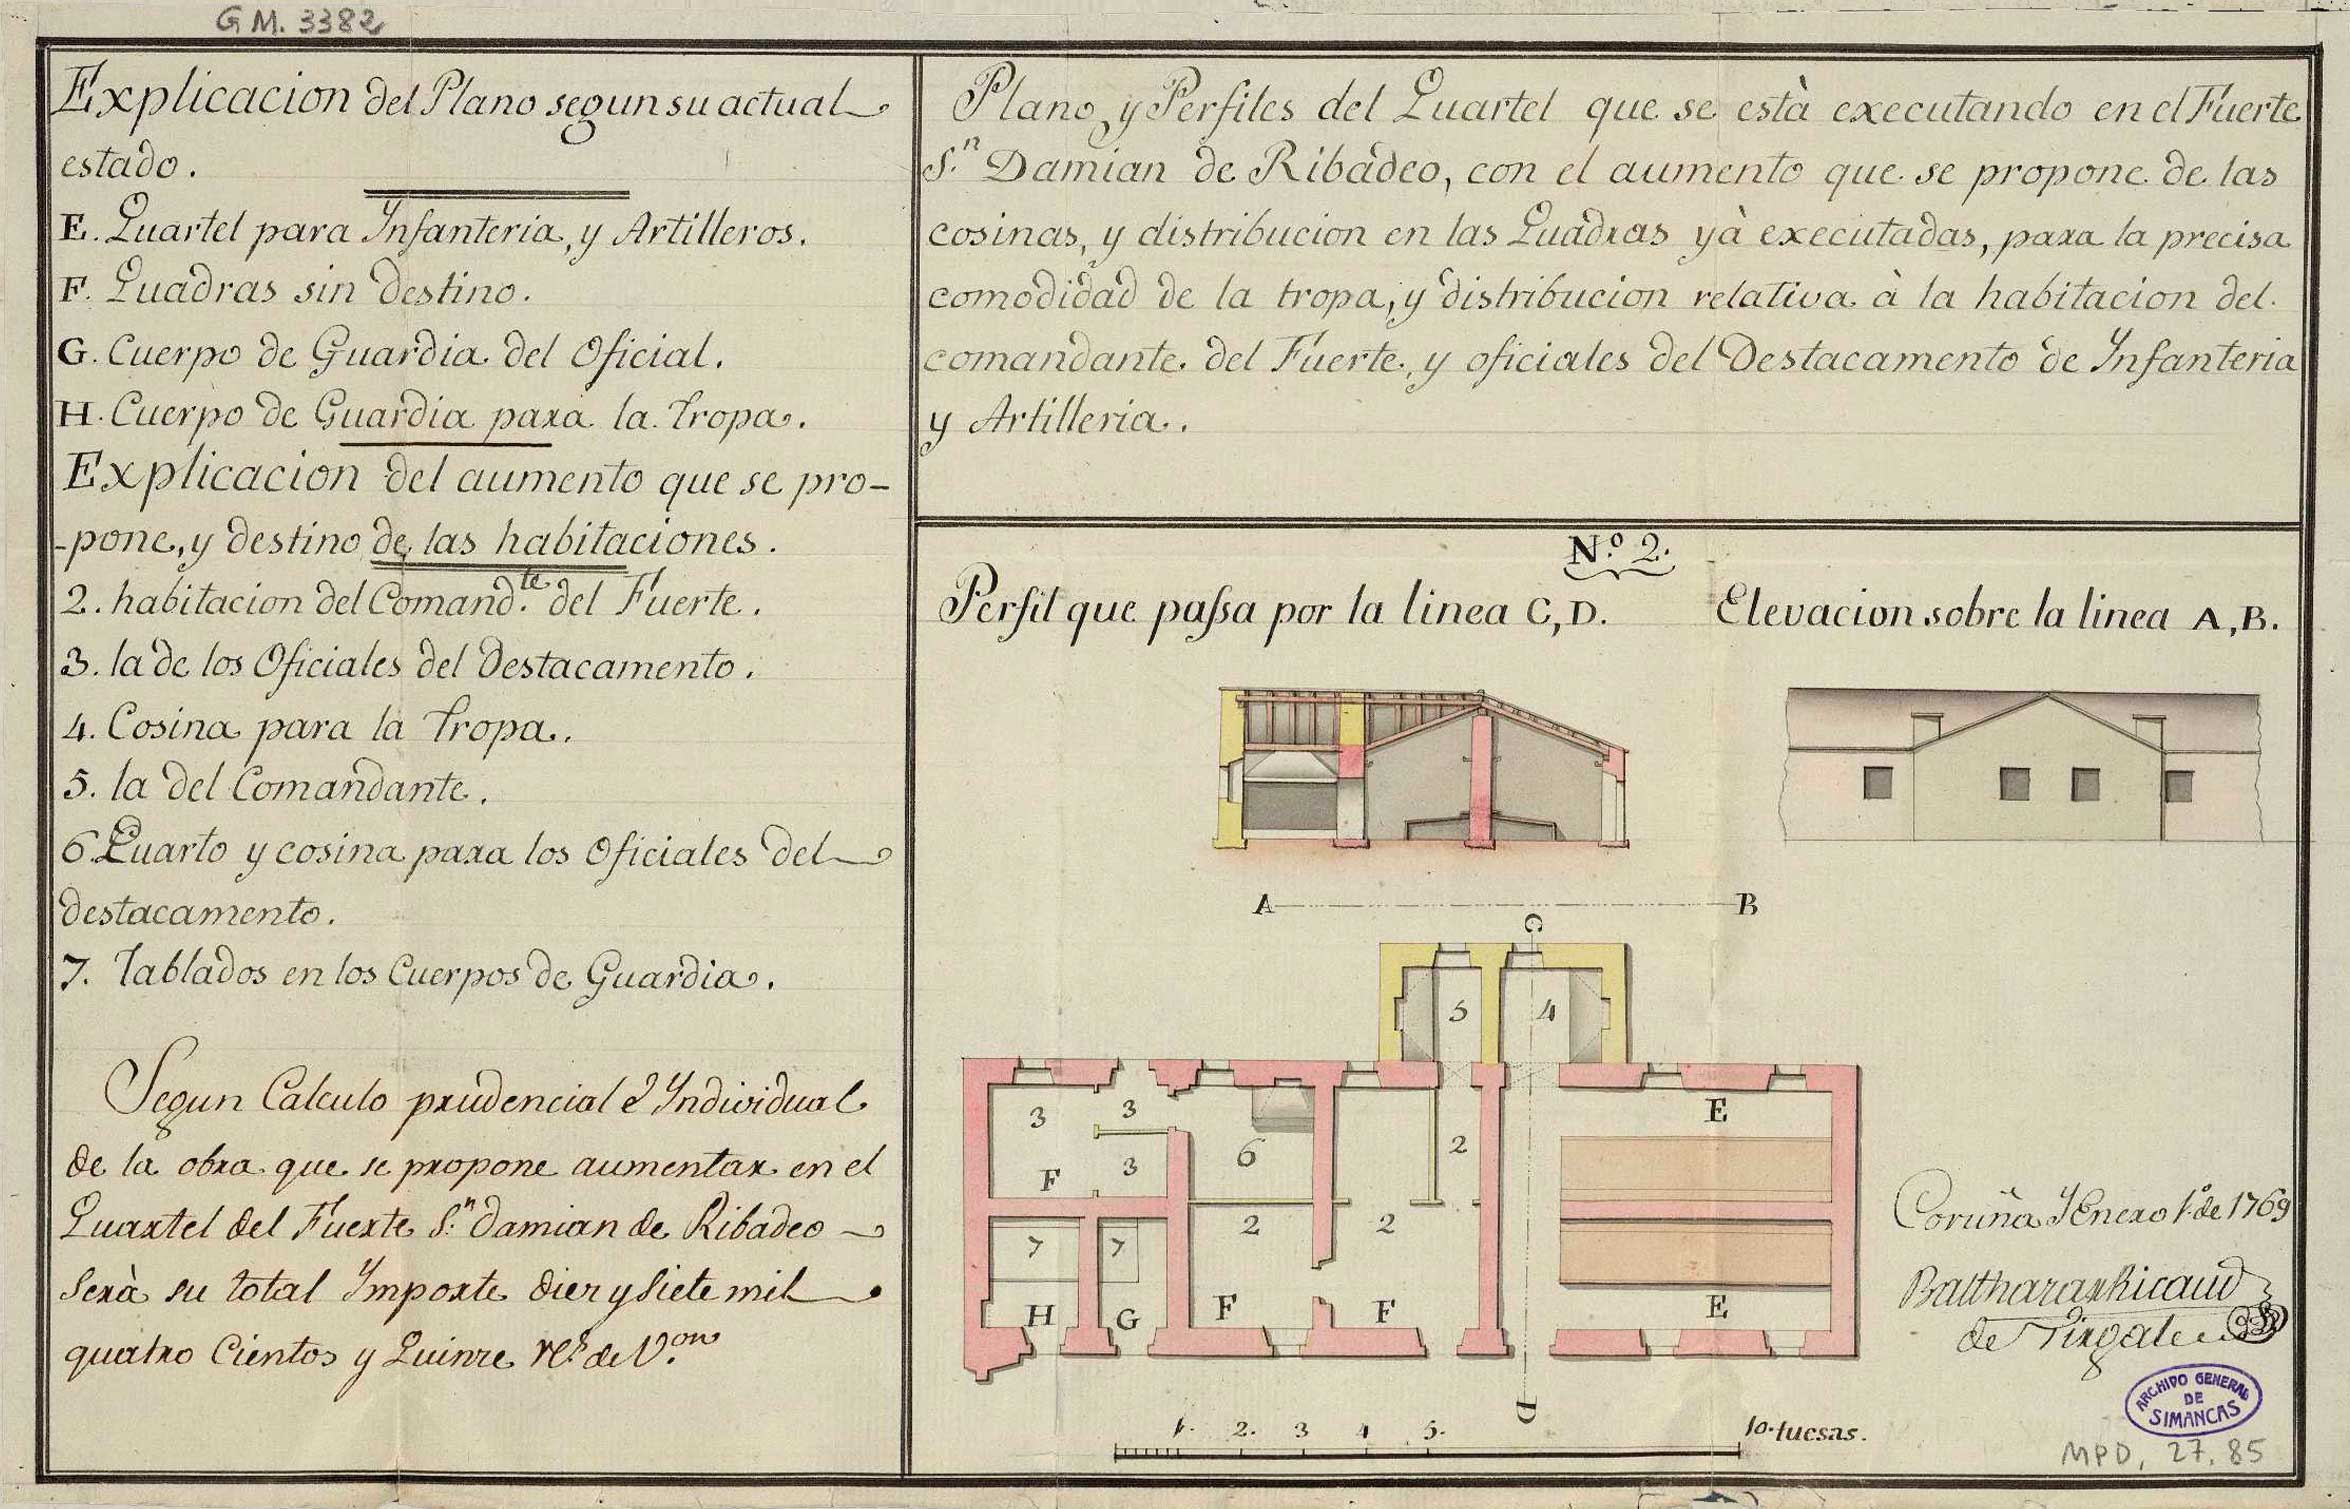 GM. 3382
Explicacion del Plano segun su actual
estado.
E. Quartel para Ynfanteria, y Artilleros.
F. Quadras sin destino.
G. Cuerpo de Guardia del Oficial.
H. Cuerpo de Guardia para la Tropa.
Explicacion del aumento que se pro-
-pone, y destino de las habitaciones.
2. habitacion del Comand.te del Fuerte.
3. la de los Oficiales del Destacamento.
4. Cosina para la Tropa.
5. la del Comandante.
6. Quarto y cosina para los Oficiales del
destacamento.
7. Tablados en los Cuerpos de Guardia.
Segun Calculo prudencial è Yndividual
de la obra que se propone aumentar en el
Quartel del Fuerte S.n Damian de Ribadeo
serà su total Ymporte diez y siete mil
quatro Cientos y Quinze rs. de V.on
Plano, y Perfiles del Quartel que se està executando en el Fuerte
S.n Damian de Ribadeo, con el aumento que se propone de las
cosinas, y distribucion en las Quadras yà executadas, para la precisa
comodidad de la tropa, y distribucion relativa à la habitacion del
comandante del Fuerte, y oficiales del Destacamento de Ynfanteria
y Artilleria.
N.o 2.
Perfil que passa por la linea C, D.
Elevacion sobre la linea A, B.
A B
C
5 4
3 3 E
6 2
F 3
2 2
7 7
H G F F E
D
1. 2. 3 4 5. 10. tuesas.
Coruña y Enero 1.o de 1769
Balthazar Ricaud
de Tirgale
ARCHIVO GENERAL
DE
SIMANCAS
MPD, 27, 85